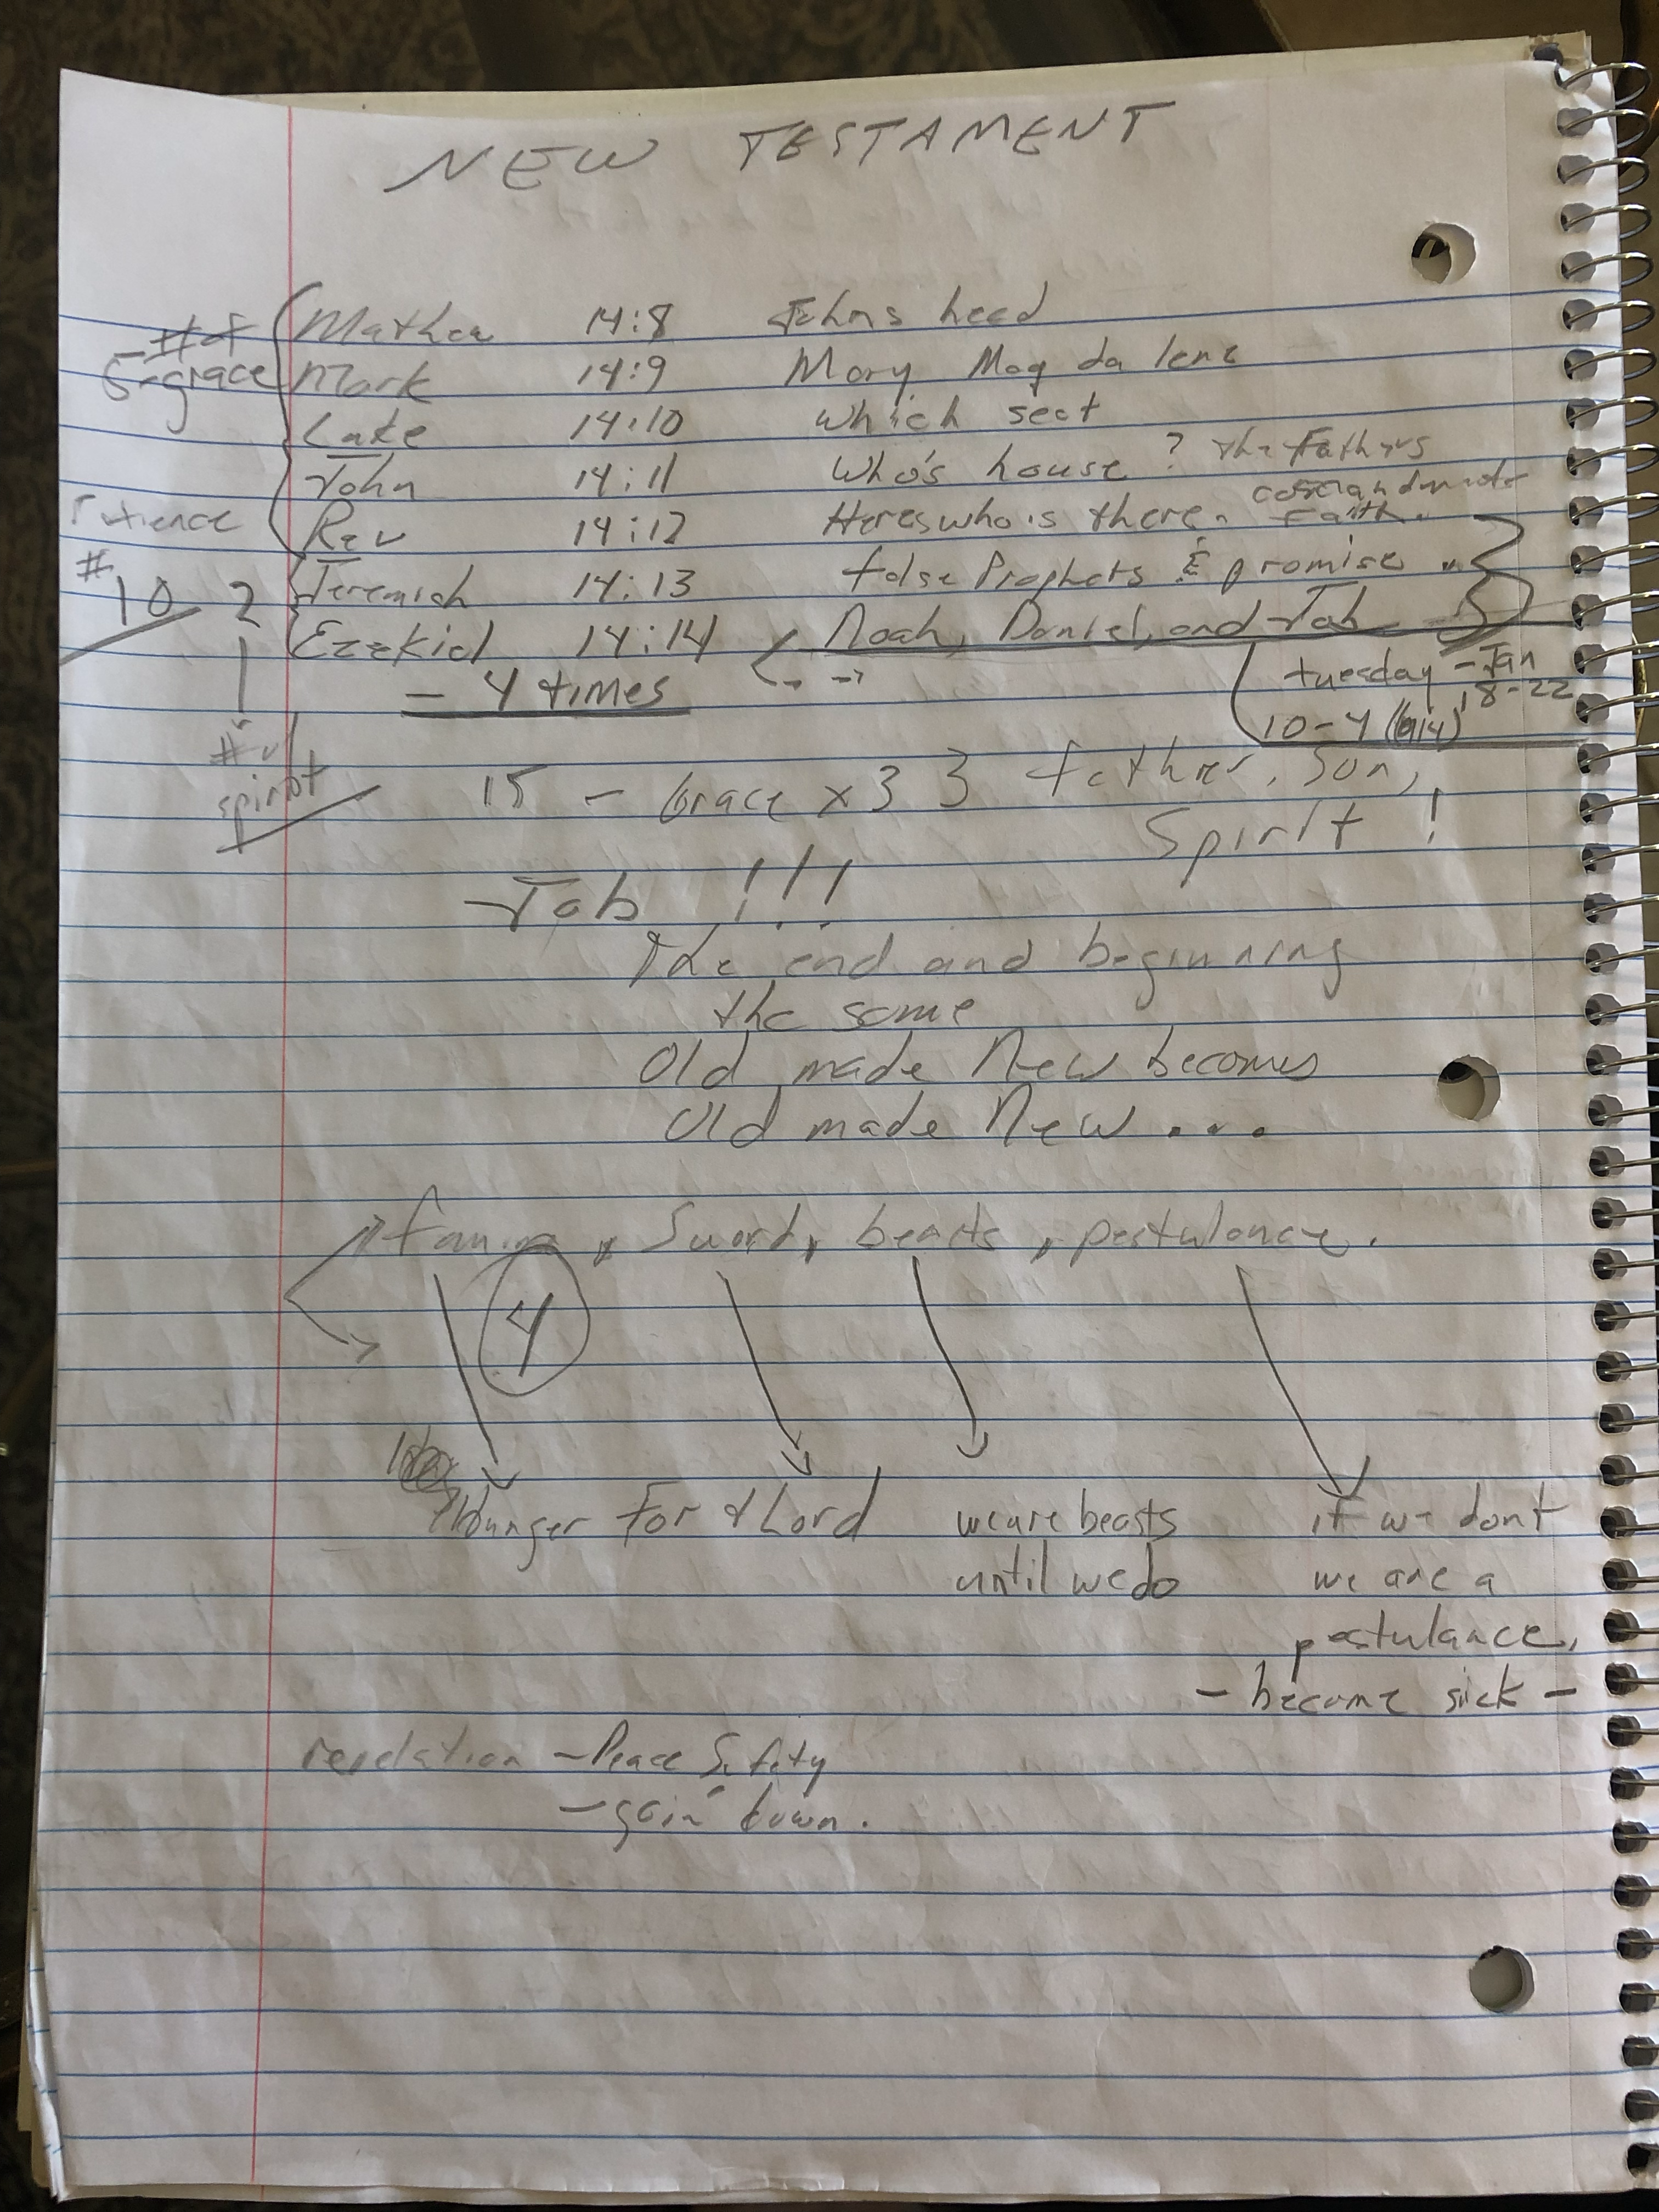 NEW TESTAMENT
# of
5-grace
Mathew 14:8 Johns head
Mark 14:9 Mary Mag da lene
Luke 14:10 which seat
John 14:11 Who's house? the Fathers
Rev 14:12 Heres who is there. Faith.
Patience
#
10 2
Jeremiah 14:13 false Prophets & promise
Ezekiel 14:14 Noah, Daniel, and Job
- 4 times
tuesday - Jan
18-22
10-4
# of
spirit
15 - Grace x 3 3 father, Son,
Spirit!
Job !!!
The end and beginning
the same
Old made New becomes
Old made New...
famine, Sword, beasts, pestulance.
4
Hunger For Lord
we are beasts
until we do
if we dont
we are a
pestulance,
- become sick -
revelation - Peace Safety
- goin' down.